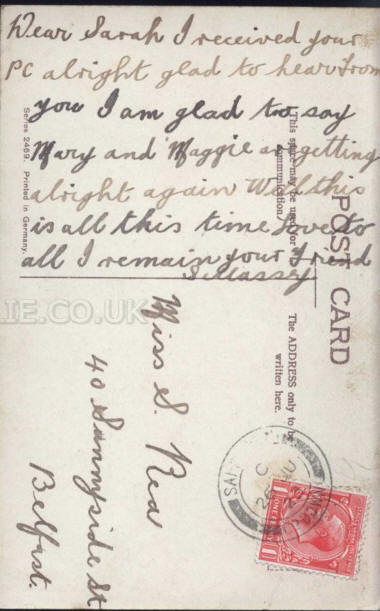 Dear Sarah I received your
PC alright glad to hear from
you I am glad to say
Mary and Maggie are getting
alright again Well this
is all this time love to
all I remain your friend
S Massey
Series 2469. Printed in Germany.
This space may be used for
communication
POST CARD
The ADDRESS only to be
written here.
Miss S. Rea
40 Sunnyside St
Belfast.
IE.CO.UK
ONE PENNY